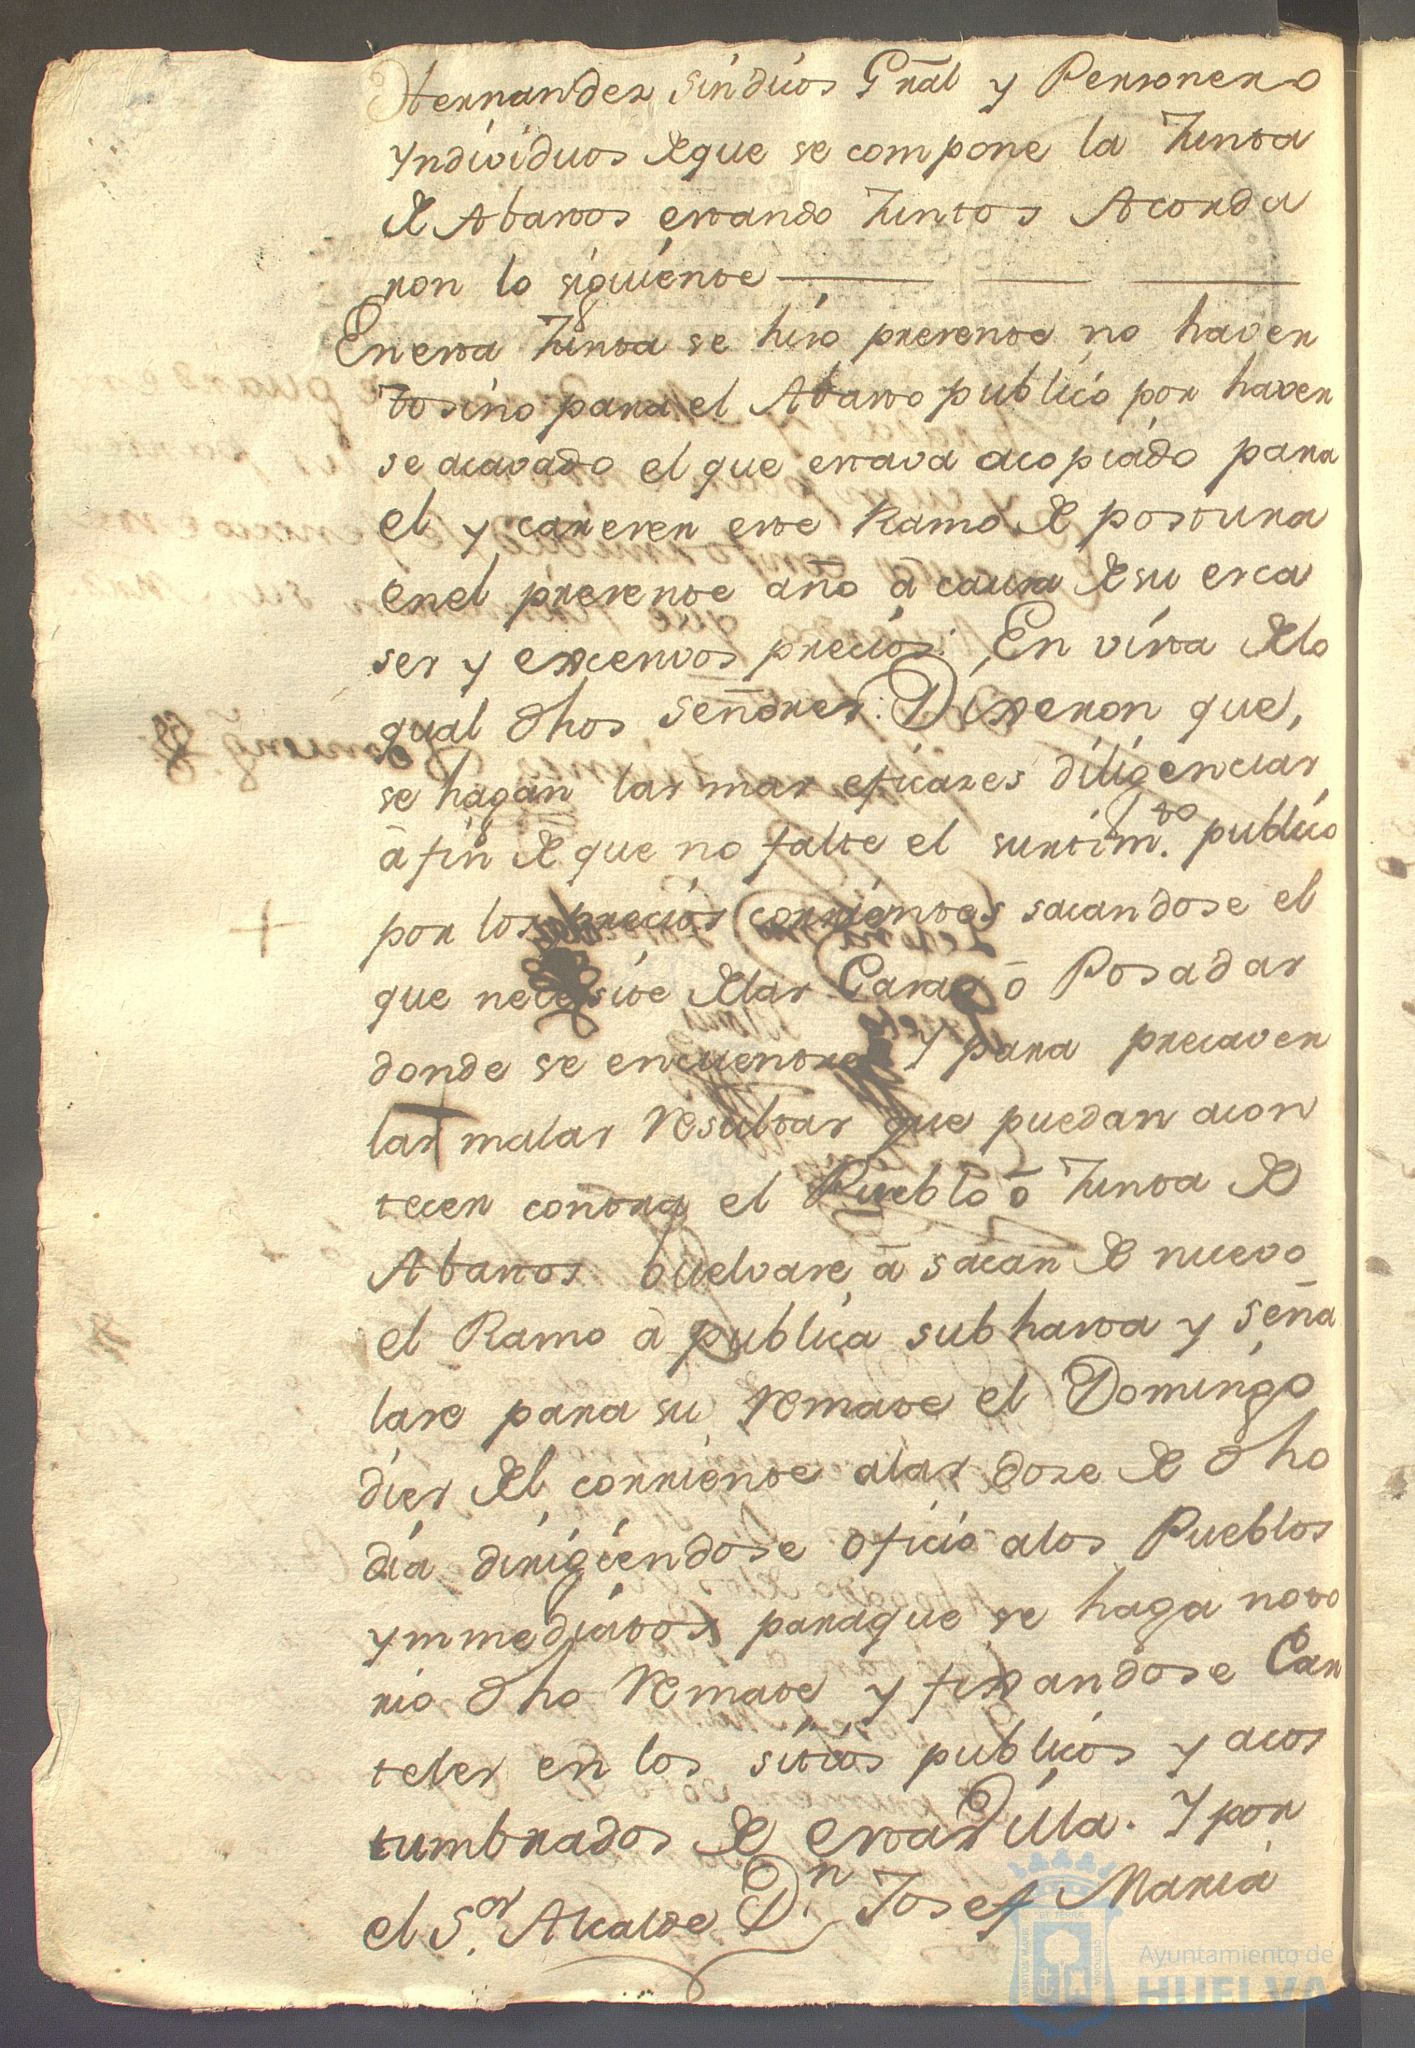 Hernandez sindicos Gñal y Personero
yndividuos de que se compone la Junta
de Abastos estando Juntos Acorda
ron lo siguiente
En esta Junta se hizo presente no haver
tosino para el Abasto publico por haver
se acavado el que estava acopiado para
el y careser este Ramo de postura
en el presente año â causa de su esca
ses y excesivos precios: En vista de lo
qual dhos señores: Dixeron que,
se hagan las mas eficases diligencias,
â fin de que no falte el surtim.to publico
por los precios corrientes sacandose el
que necesite de las Casas ô Posadas
donde se encuentre Y para precaver
las malas resultas que puedan acon
tecer contra el Pueblo ô Junta de
Abastos buelvase â sacar de nuevo
el Ramo â publica subhasta y seña
lase para su remate el Domingo
dies del corriente alas dose de dho
dia dirigiendose oficio alos Pueblos
ymmediatos paraque se haga noto
rio dho remate y fixandose Car
teles en los sitios publicos y acos
tumbrados de esta Villa. Y por
el S.or Alcalde D.n Josef Maria
Ayuntamiento de
HUELVA